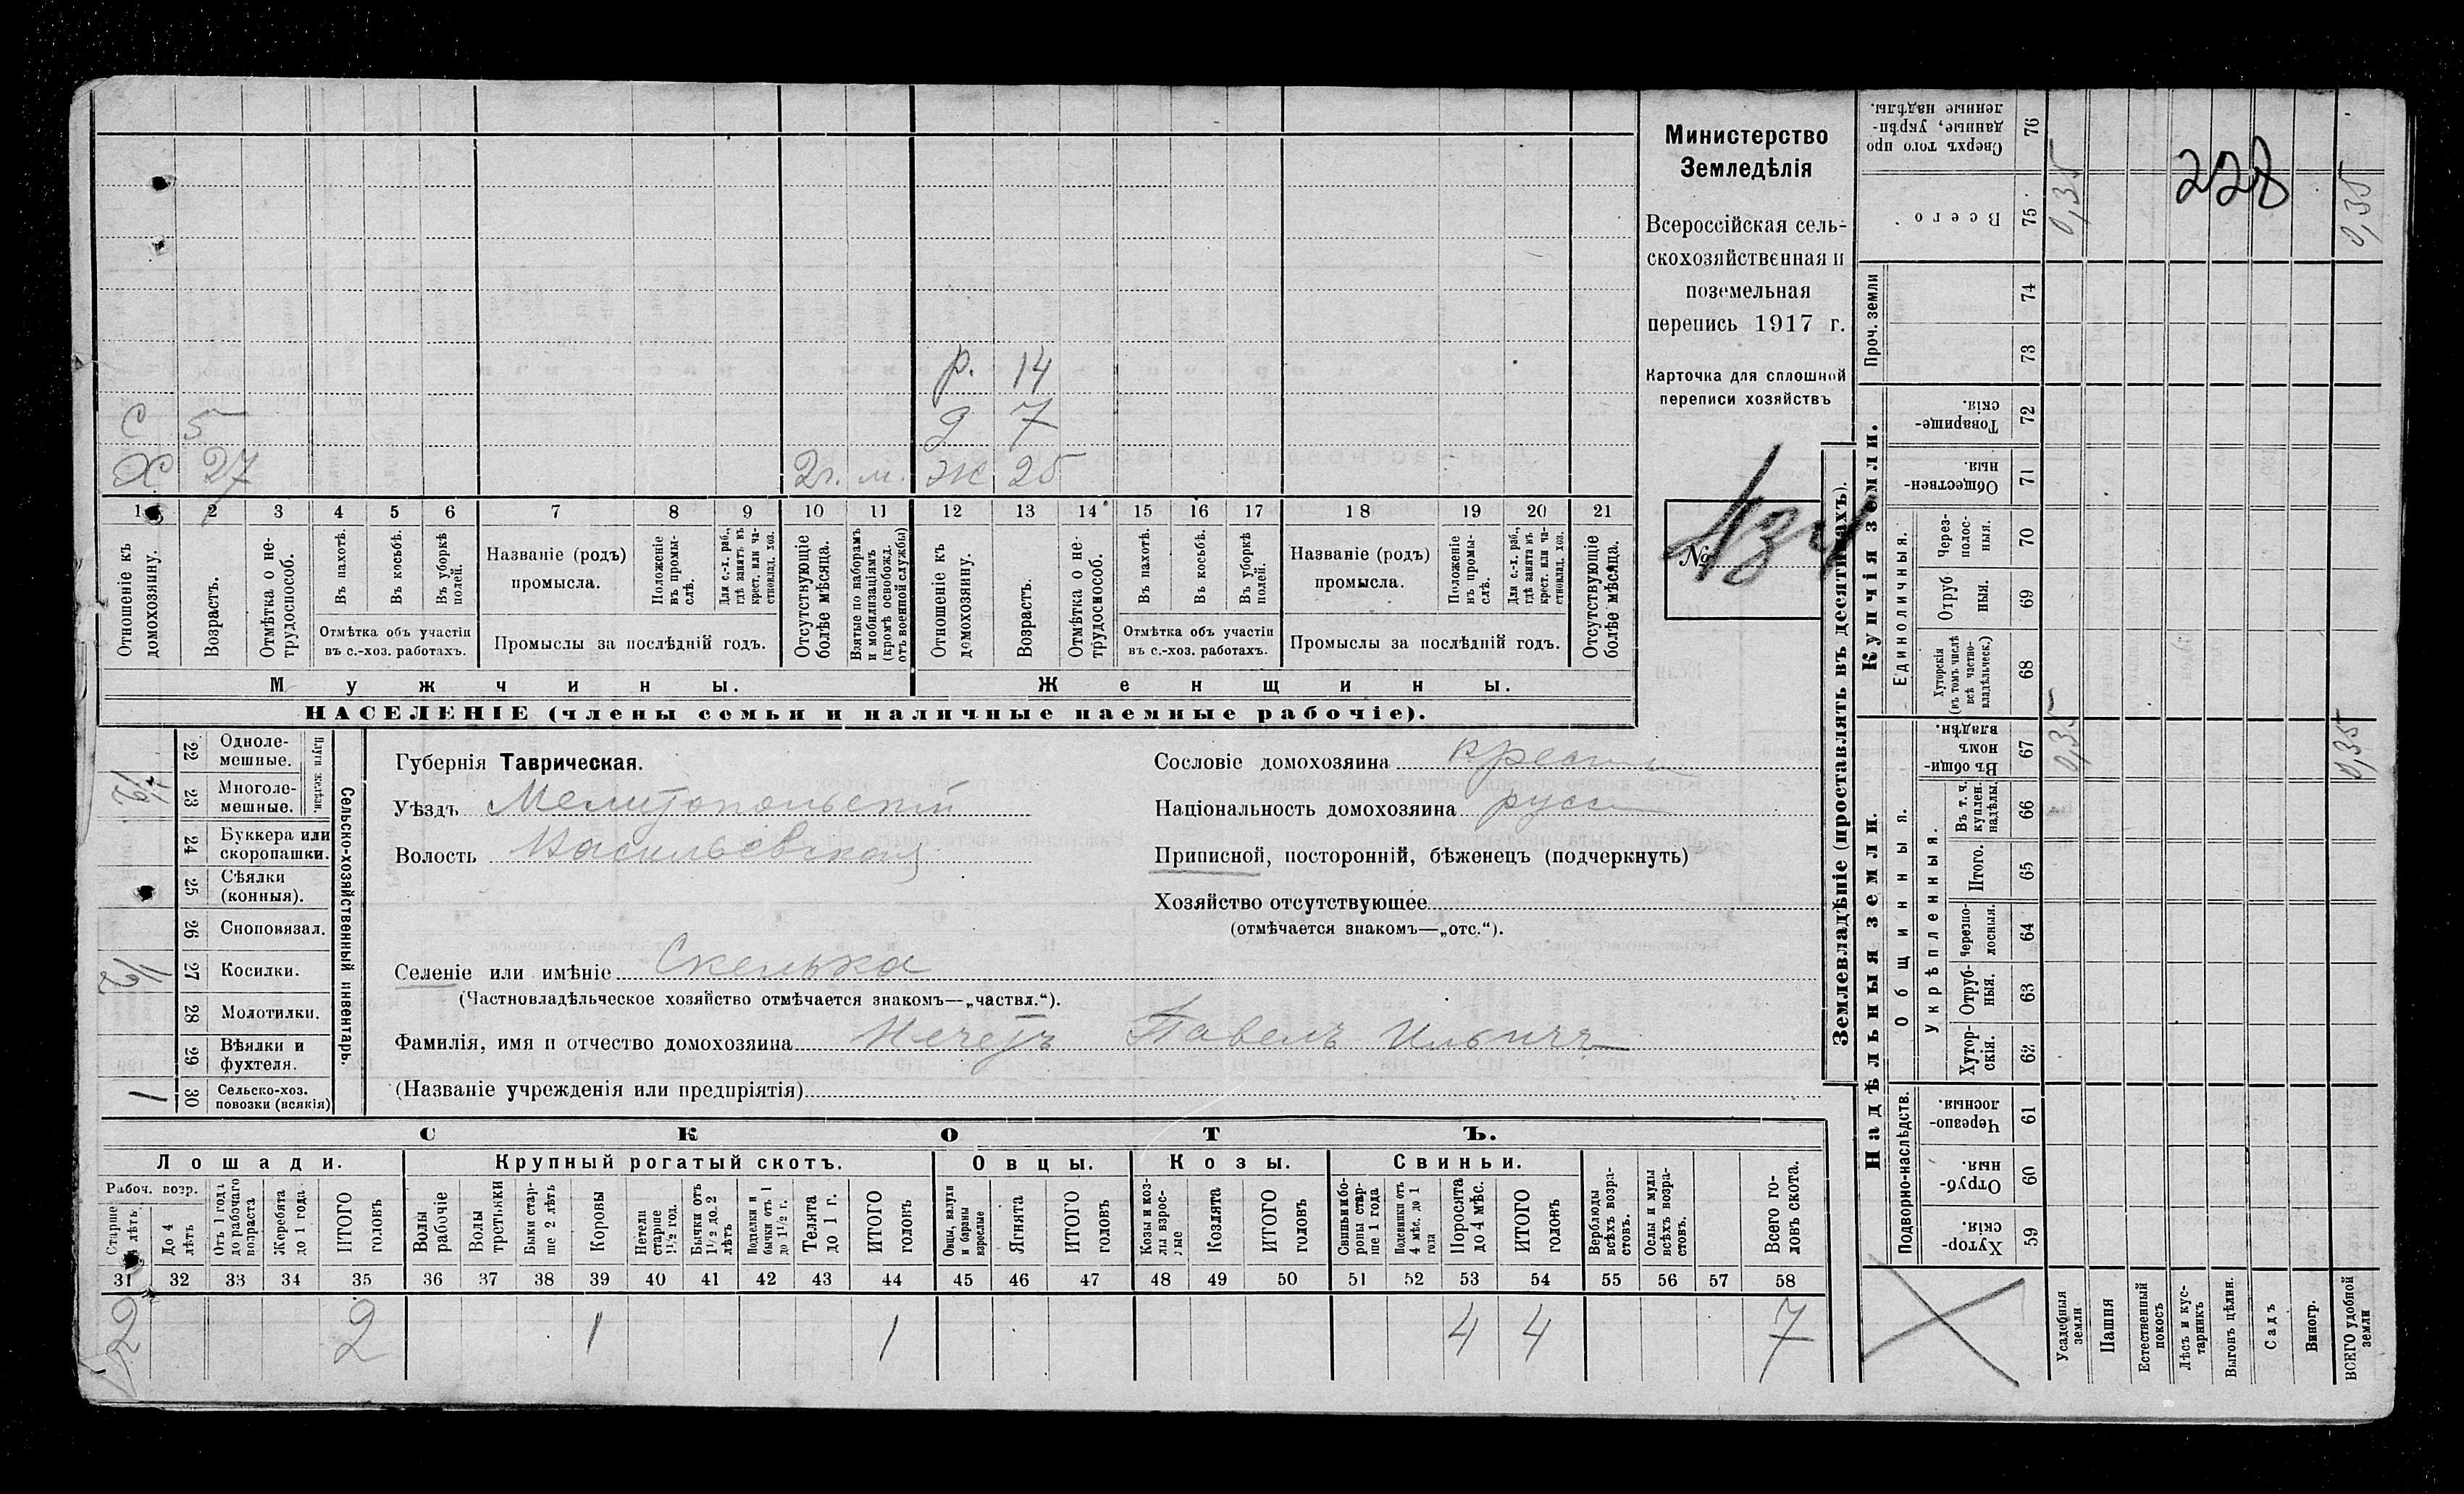 228
Министерство
Земледѣлія
Всероссійская сель-
скохозяйственная и
поземельная
перепись 1917 г.
Карточка для сплошной
переписи хозяйствъ
№
р. 14
С 5 д 7
Х 27 2г. м. Ж 25
1 2 3 4 5 6 7 8 9 10 11 12 13 14 15 16 17 18 19 20 21
Отношеніе къ домохозяину.
Возрастъ.
Отмѣтка о не-трудоспособ.
Въ пахотѣ.
Въ косьбѣ.
Въ уборкѣ полей.
Отмѣтка объ участіи
въ с.-хоз. работахъ.
Названіе (родъ)
промысла.
Положеніе въ промы-слѣ.
Для с.-х. раб., гдѣ занятъ въ крест. или ча-стновлад. хоз.
Промыслы за послѣдній годъ.
Отсутствующіе болѣе мѣсяца.
Взятые по наборамъ и мобилизаціямъ (кромѣ освобожд. отъ военной службы)
Отношеніе къ домохозяину.
Возрастъ.
Отмѣтка о не-трудоспособ.
Въ пахотѣ.
Въ косьбѣ.
Въ уборкѣ полей.
Отмѣтка объ участіи
въ с.-хоз. работахъ.
Названіе (родъ)
промысла.
Положеніе въ промы-слѣ.
Для с.-х. раб., гдѣ занята въ крест. или ча-стновлад. хоз.
Промыслы за послѣдній годъ.
Отсутствующіе болѣе мѣсяца.
Мужчины. Женщины.
НАСЕЛЕНІЕ (члены семьи и наличные наемные рабочіе).
Сельско-хозяйственный инвентарь.
Плуги желѣзн.
22 Одноле-
мешные.
23 Многоле-
мешные.
1/2
24 Буккера или
скоропашки.
25 Сѣялки
(конныя).
26 Сноповязал.
27 Косилки.
1/2
28 Молотилки.
29 Вѣялки и
фухтеля.
30 Сельско-хоз.
повозки (всякія)
1
Губернія Таврическая.
Уѣздъ Мелитопольскій
Волость Васильевская
Селеніе или имѣніе Скелька
(Частновладѣльческое хозяйство отмѣчается знакомъ—„частвл.“).
Фамилія, имя и отчество домохозяина Нечетъ Павелъ Ильичъ
(Названіе учрежденія или предпріятія)
Сословіе домохозяина крест
Національность домохозяина русс
Приписной, посторонній, бѣженецъ (подчеркнуть)
Хозяйство отсутствующее
(отмѣчается знакомъ—„отс.“).
СКОТЪ.
Лошади. Крупный рогатый скотъ. Овцы. Козы. Свиньи.
Рабоч. возр.
Старше лѣтъ
До 4 лѣтъ
Отъ 1 года до рабочаго возраста
Жеребята до 1 года
ИТОГО головъ
Волы рабочіе
Волы третьяки
Быки стар-ше 2 лѣтъ
Коровы
Нетели старше 1½ год.
Бычки отъ 1½ до 2 лѣтъ
Телята до 1 г.
ИТОГО головъ
Овцы, валухи и бараны взрослые
Ягнята
ИТОГО головъ
Козы и коз-лы взрос-лые
Козлята
ИТОГО головъ
Свиньи и бо-ровы стар-ше 1 года
Подсвинки отъ 4 мѣс. до 1 года
Поросята до 4 мѣс.
ИТОГО головъ
Верблюды всѣхъ возра-стовъ.
Ослы и мулы всѣхъ возра-стовъ.
Всего го-ловъ скота.
31 32 33 34 35 36 37 38 39 40 41 42 43 44 45 46 47 48 49 50 51 52 53 54 55 56 57 58
2 2 1 1 4 4 7
Землевладѣніе (проставлять въ десятинахъ).
Надѣльныя земли.
Купчія земли.
Проч. земли
Подворно-наслѣдств.
Общинныя.
Укрѣпленныя.
Единоличныя.
Хутор-скія. 59
Отруб-ныя. 60
Черезпо-лосныя. 61
Хутор-скія. 62
Отруб-ныя. 63
Черезпо-лосныя. 64
Итого. 65
Въ т. ч. куплен. надѣлы. 66
Въ общи-номъ владѣн. 67
Хуторскія (въ томъ числѣ всѣ частно-владѣльческ.) 68
Отруб-ныя. 69
Через-полос-ныя. 70
Обществен-ныя. 71
Товарище-скія. 72
73
74
Всего 75
Сверхъ того про-данные, укрѣп-ленные надѣлы. 76
Усадебныя земли 0,35 0,35
Пашня
Естественный покосъ
Лѣсъ и кус-тарникъ
Выгонъ цѣлин.
Садъ
Виногр.
ВСЕГО удобной земли 0,35 0,35